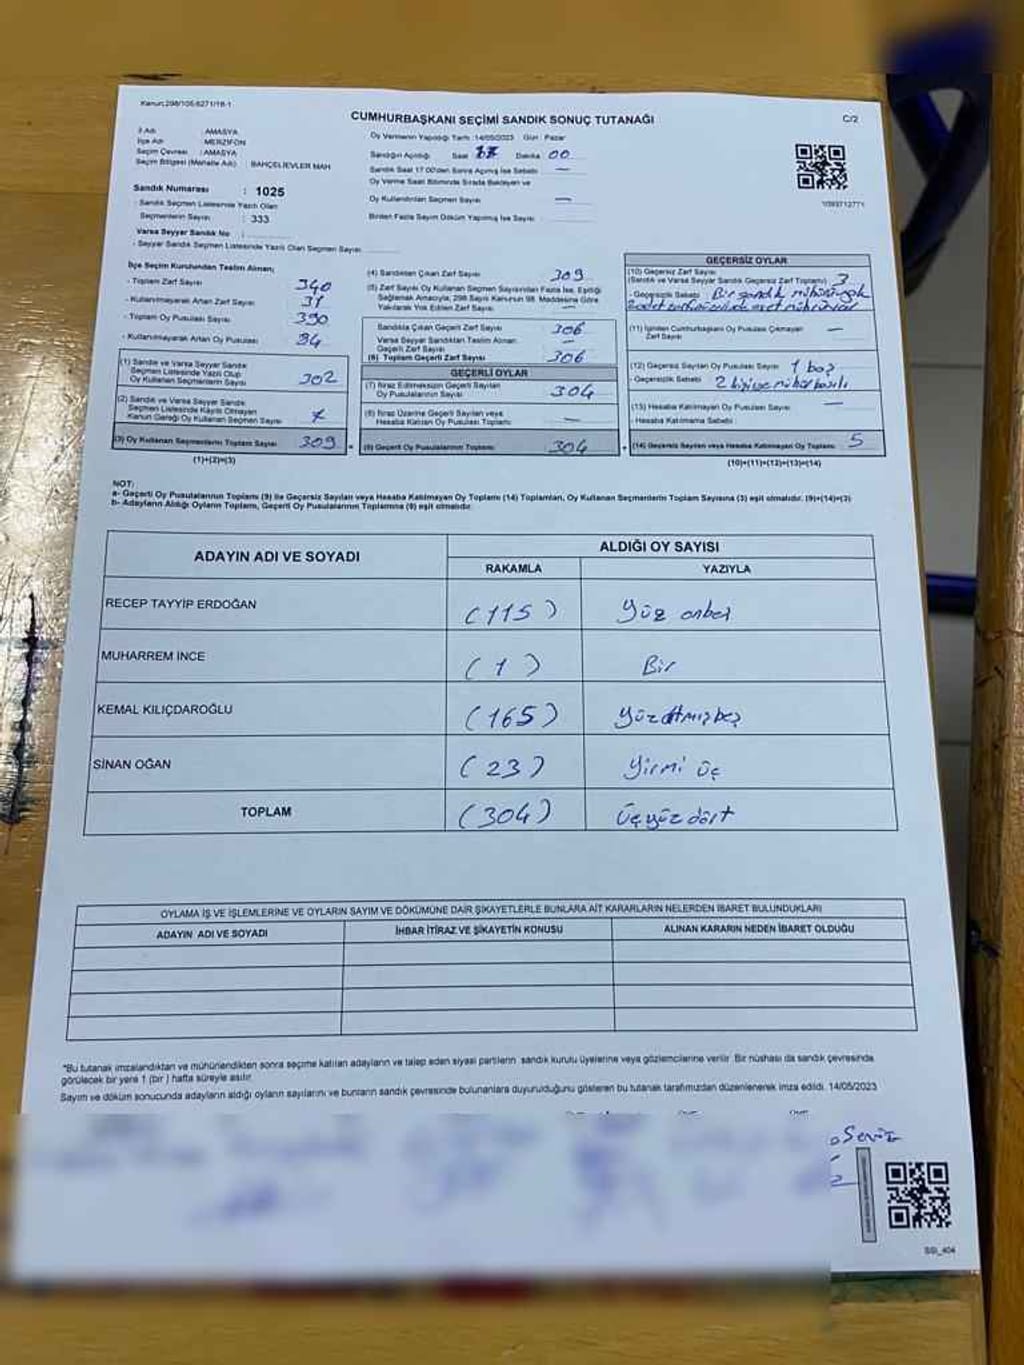 Kanun:298/105;6271/18-1
CUMHURBAŞKANI SEÇİMİ SANDIK SONUÇ TUTANAĞI
C/2
İl Adı : AMASYA
İlçe Adı : MERZİFON
Seçim Çevresi : AMASYA
Seçim Bölgesi (Mahalle Adı) : BAHÇELİEVLER MAH
Sandık Numarası : 1025
Sandık Seçmen Listesinde Yazılı Olan
Seçmenlerin Sayısı : 333
Varsa Seyyar Sandık No :
- Seyyar Sandık Seçmen Listesinde Yazılı Olan Seçmen Sayısı
Oy Vermenin Yapıldığı Tarih :14/05/2023 Gün : Pazar
Sandığın Açıldığı Saat 17 Dakika 00
Sandık Saat 17.00'den Sonra Açılmış İse Sebebi —
Oy Verme Saati Bitiminde Sırada Bekleyen ve
Oy Kullandırılan Seçmen Sayısı —
Birden Fazla Sayım Döküm Yapılmış İse Sayısı
1093712771
İlçe Seçim Kurulundan Teslim Alınan;
- Toplam Zarf Sayısı 340
- Kullanılmayarak Artan Zarf Sayısı 31
- Toplam Oy Pusulası Sayısı 390
- Kullanılmayarak Artan Oy Pusulası
(1) Sandık ve Varsa Seyyar Sandık
Seçmen Listesinde Yazılı Olup
Oy Kullanan Seçmenlerin Sayısı 302
(2) Sandık ve Varsa Seyyar Sandık
Seçmen Listesinde Kayıtlı Olmayan
Kanun Gereği Oy Kullanan Seçmen Sayısı 7
(3) Oy Kullanan Seçmenlerin Toplam Sayısı 309
(1)+(2)=(3)
(4) Sandıktan Çıkan Zarf Sayısı 309
(5) Zarf Sayısı Oy Kullanan Seçmen Sayısından Fazla İse, Eşitliği
Sağlamak Amacıyla, 298 Sayılı Kanunun 98. Maddesine Göre
Yakılarak Yok Edilen Zarf Sayısı —
Sandıkta Çıkan Geçerli Zarf Sayısı 306
Varsa Seyyar Sandıktan Teslim Alınan
Geçerli Zarf Sayısı —
(6) Toplam Geçerli Zarf Sayısı 306
GEÇERLİ OYLAR
(7) İtiraz Edilmeksizin Geçerli Sayılan
Oy Pusulalarının Sayısı 304
(8) İtiraz Üzerine Geçerli Sayılan veya
Hesaba Katılan Oy Pusulası Toplamı —
(9) Geçerli Oy Pusulalarının Toplamı 304
GEÇERSİZ OYLAR
(10) Geçersiz Zarf Sayısı
(Sandık ve Varsa Seyyar Sandık Geçersiz Zarf Toplamı) 3
- Geçersizlik Sebebi Bir sandık mühürü yok
(11) İçinden Cumhurbaşkanı Oy Pusulası Çıkmayan
Zarf Sayısı —
(12) Geçersiz Sayılan Oy Pusulası Sayısı 1 boş
- Geçersizlik Sebebi 2 kişiye mühür basılı
(13) Hesaba Katılmayan Oy Pusulası Sayısı —
- Hesaba Katılmama Sebebi
(14) Geçersiz Sayılan veya Hesaba Katılmayan Oy Toplamı 5
(10)+(11)+(12)+(13)=(14)
NOT:
a- Geçerli Oy Pusulalarının Toplamı (9) ile Geçersiz Sayılan veya Hesaba Katılmayan Oy Toplamı (14) Toplamları, Oy Kullanan Seçmenlerin Toplam Sayısına (3) eşit olmalıdır. (9)+(14)=(3)
b- Adayların Aldığı Oyların Toplamı, Geçerli Oy Pusulalarının Toplamına (9) eşit olmalıdır.
ADAYIN ADI VE SOYADI
ALDIĞI OY SAYISI
RAKAMLA YAZIYLA
RECEP TAYYİP ERDOĞAN (115) Yüz onbeş
MUHARREM İNCE (1) Bir
KEMAL KILIÇDAROĞLU (165) Yüzaltmışbeş
SİNAN OĞAN (23) Yirmi üç
TOPLAM (304) Üçyüz dört
OYLAMA İŞ VE İŞLEMLERİNE VE OYLARIN SAYIM VE DÖKÜMÜNE DAİR ŞİKAYETLERLE BUNLARA AİT KARARLARIN NELERDEN İBARET BULUNDUKLARI
ADAYIN ADI VE SOYADI İHBAR İTİRAZ VE ŞİKAYETİN KONUSU ALINAN KARARIN NEDEN İBARET OLDUĞU
*Bu tutanak imzalandıktan ve mühürlendikten sonra seçime katılan adayların ve talep eden siyasi partilerin sandık kurulu üyelerine veya gözlemcilerine verilir. Bir nüshası da sandık çevresinde
görülecek bir yere 1 (bir) hafta süreyle asılır.
Sayım ve döküm sonucunda adayların aldığı oyların sayılarını ve bunların sandık çevresinde bulunanlara duyurulduğunu gösteren bu tutanak tarafımızdan düzenlenerek imza edildi. 14/05/2023